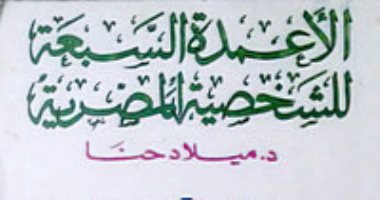 الأعمدة السبعة
للشخصية المصرية
د. ميلاد حنا